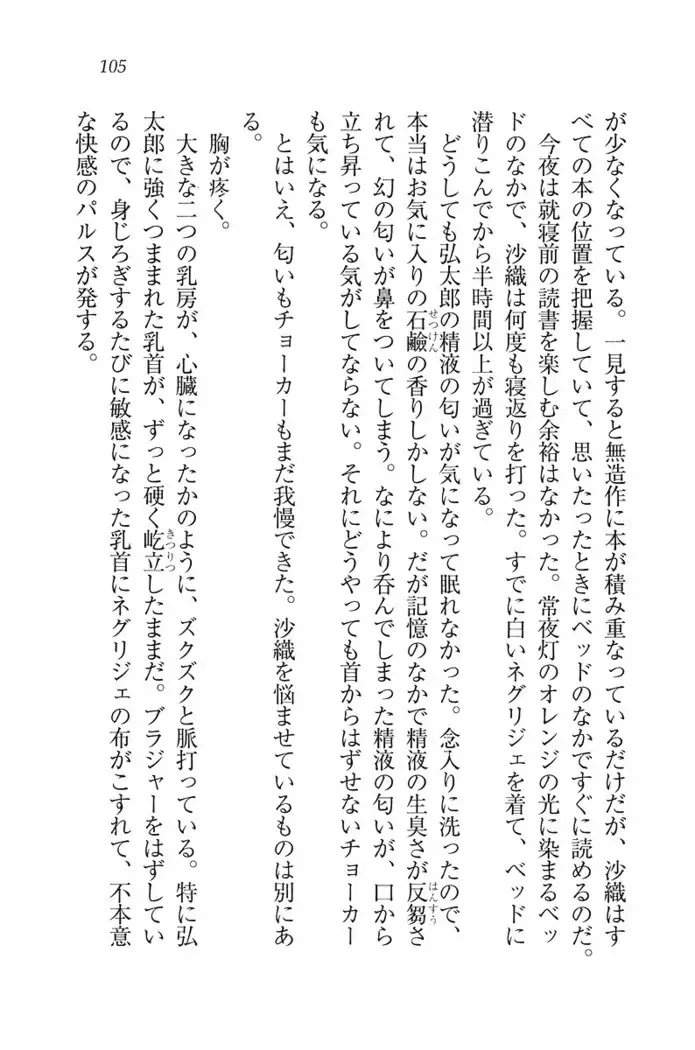 105
が少なくなっている。一見すると無造作に本が積み重なっているだけだが、沙織はす
べての本の位置を把握していて、思いたったときにベッドのなかですぐに読めるのだ。
今夜は就寝前の読書を楽しむ余裕はなかった。常夜灯のオレンジの光に染まるベッ
ドのなかで、沙織は何度も寝返りを打った。すでに白いネグリジェを着て、ベッドに
潜りこんでから半時間以上が過ぎている。
どうしても弘太郎の精液の匂いが気になって眠れなかった。念入りに洗ったので、
本当はお気に入りの石鹼の香りしかしない。だが記憶のなかで精液の生臭さが反芻さ
れて、幻の匂いが鼻をついてしまう。なにより呑んでしまった精液の匂いが、口から
立ち昇っている気がしてならない。それにどうやっても首からはずせないチョーカー
も気になる。
とはいえ、匂いもチョーカーもまだ我慢できた。沙織を悩ませているものは別にあ
る。
胸が疼く。
大きな二つの乳房が、心臓になったかのように、ズクズクと脈打っている。特に弘
太郎に強くつままれた乳首が、ずっと硬く屹立したままだ。ブラジャーをはずしてい
るので、身じろぎするたびに敏感になった乳首にネグリジェの布がこすれて、不本意
な快感のパルスが発する。